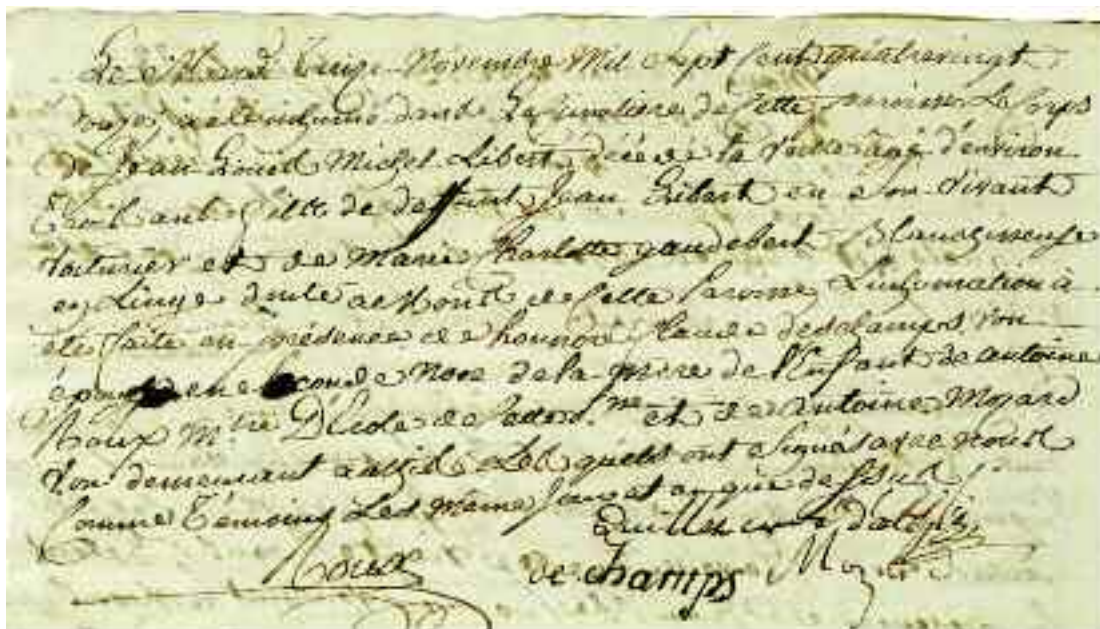 Le Mardi quinze Novembre Mil Sept Cent quatrevingt
a été inhumé dans le Cimetiere de Cette paroisse Le Corps
de Jean Louis Michel Libert décédé la veille agé d'environ
trois ans fils de deffunt Jean Libert en son vivant
Voiturier et de Marie Charlotte gaudebert Blanchisseuse
en Linge de Cette Paroisse L'inhumation a
été faite en présence de honnoré Claude deschamps von
époux en seconde Noce de la mere de l'Enfant de antoine
Roux M.tre D'École de Cette P.sse et de antoine Mozard
Von demeurant a Lesquels ont Signés avec nous
Comme Témoins Les meme Jour et an que dessus
Quillet curé
Roux
de Champs
Mozard